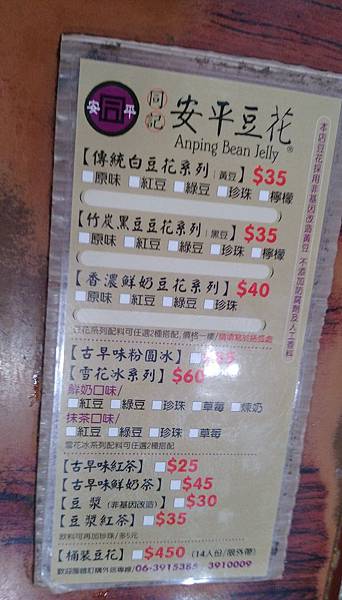 安 同 平
同記
安平豆花®
Anping Bean Jelly
本店豆花採用非基因改造黃豆 不添加防腐劑及人工香料
【傳統白豆花系列:黃豆】$35
□原味 □紅豆 □綠豆 □珍珠 □檸檬
【竹炭黑豆豆花系列:黑豆】$35
□原味 □紅豆 □綠豆 □珍珠 □檸檬
【香濃鮮奶豆花系列】$40
□原味 □紅豆 □綠豆 □珍珠
豆花系列配料可任選2種搭配,價格一樣/請填寫於空格處
【古早味粉圓冰】
【雪花冰系列】$60
鮮奶口味/
□紅豆 □綠豆 □珍珠 □草莓 □煉奶
抹茶口味/
□紅豆 □綠豆 □珍珠 □草莓
雪花冰系列配料可任選2種搭配
【古早味紅茶】□$25
【古早味鮮奶茶】□$45
【豆漿(非基因改造)】□$30
【豆漿紅茶】□$35
飲料可再加珍珠/多5元
【桶裝豆花】□$450 (14人份/限外帶)
歡迎團體訂購外送專線/06-3915385 3910009